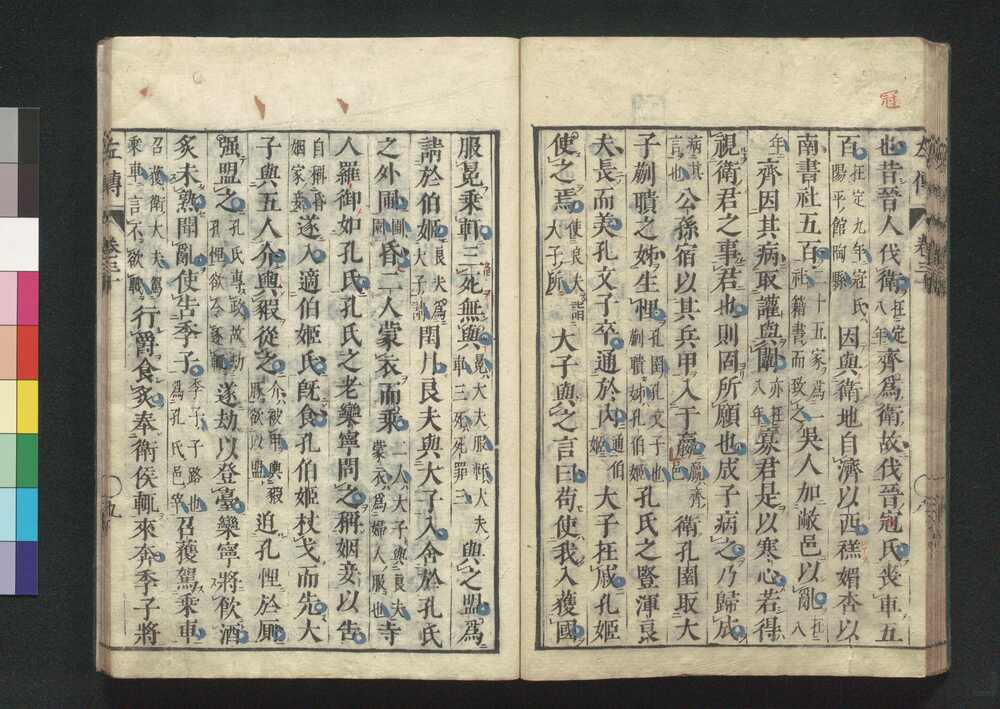 冠
也昔晉人伐衛在定八年齊爲衛故伐晉冠氏喪車五
百在定九年冠氏陽平館陶縣因與衛地自濟以西禚媚杏以
南書社五百二十五家爲一社籍書而致之吳人加敝邑以亂在八
年齊因其病取讙與闡亦在八年寡君是以寒心若得
視衛君之事君也則固所願也成子病之乃歸成
病其言也公孫宿以其兵甲入于嬴嬴齊邑衛孔圉取大
子蒯聵之姊生悝孔圉孔文子也蒯聵姊孔伯姬孔氏之豎渾良
夫長而美孔文子卒通於内通伯姬大子在戚孔姬
使之焉使良夫詣大子所大子與之言曰苟使我入獲國
服冕乘軒三死無與冕大夫服軒大夫車三死死罪三與之盟爲
請於伯姬良夫爲大子請閏月良夫與大子入舍於孔氏
之外圃圃園昏二人蒙衣而乘二人大子與良夫蒙衣爲婦人服也寺
人羅御如孔氏孔氏之老欒寧問之稱姻妾以告
自稱昏姻家妾遂入適伯姬氏既食孔伯姬杖戈而先大
子與五人介輿豭從之介被甲輿豭豚欲以盟迫孔悝於厠
强盟之孔氏專政故劫孔悝欲令逐輒遂劫以登臺欒寧將飮酒
炙未熟聞亂使告季子季子子路也爲孔氏邑宰召獲駕乘車
召獲衛大夫駕乘車言不欲戰行爵食炙奉衛侯輒來奔季子將
左傳
卷三十
九
左傳